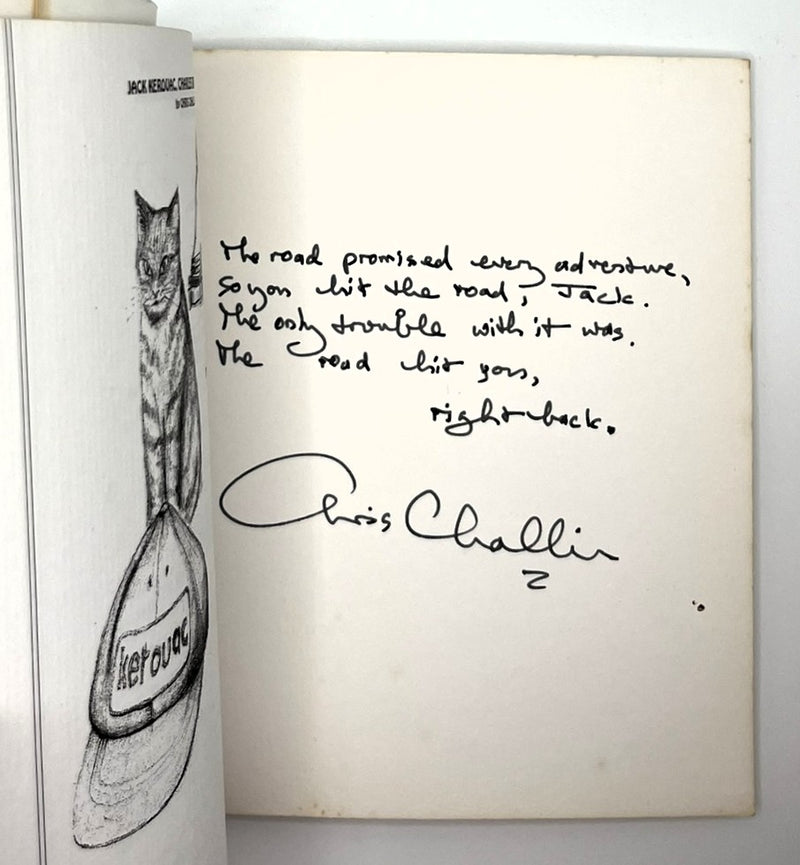 JACK KEROUAC,
The road promised every adventure,
So you hit the road, Jack.
The only trouble with it was.
The road hit you,
right back.
Chris Challis
kerouac